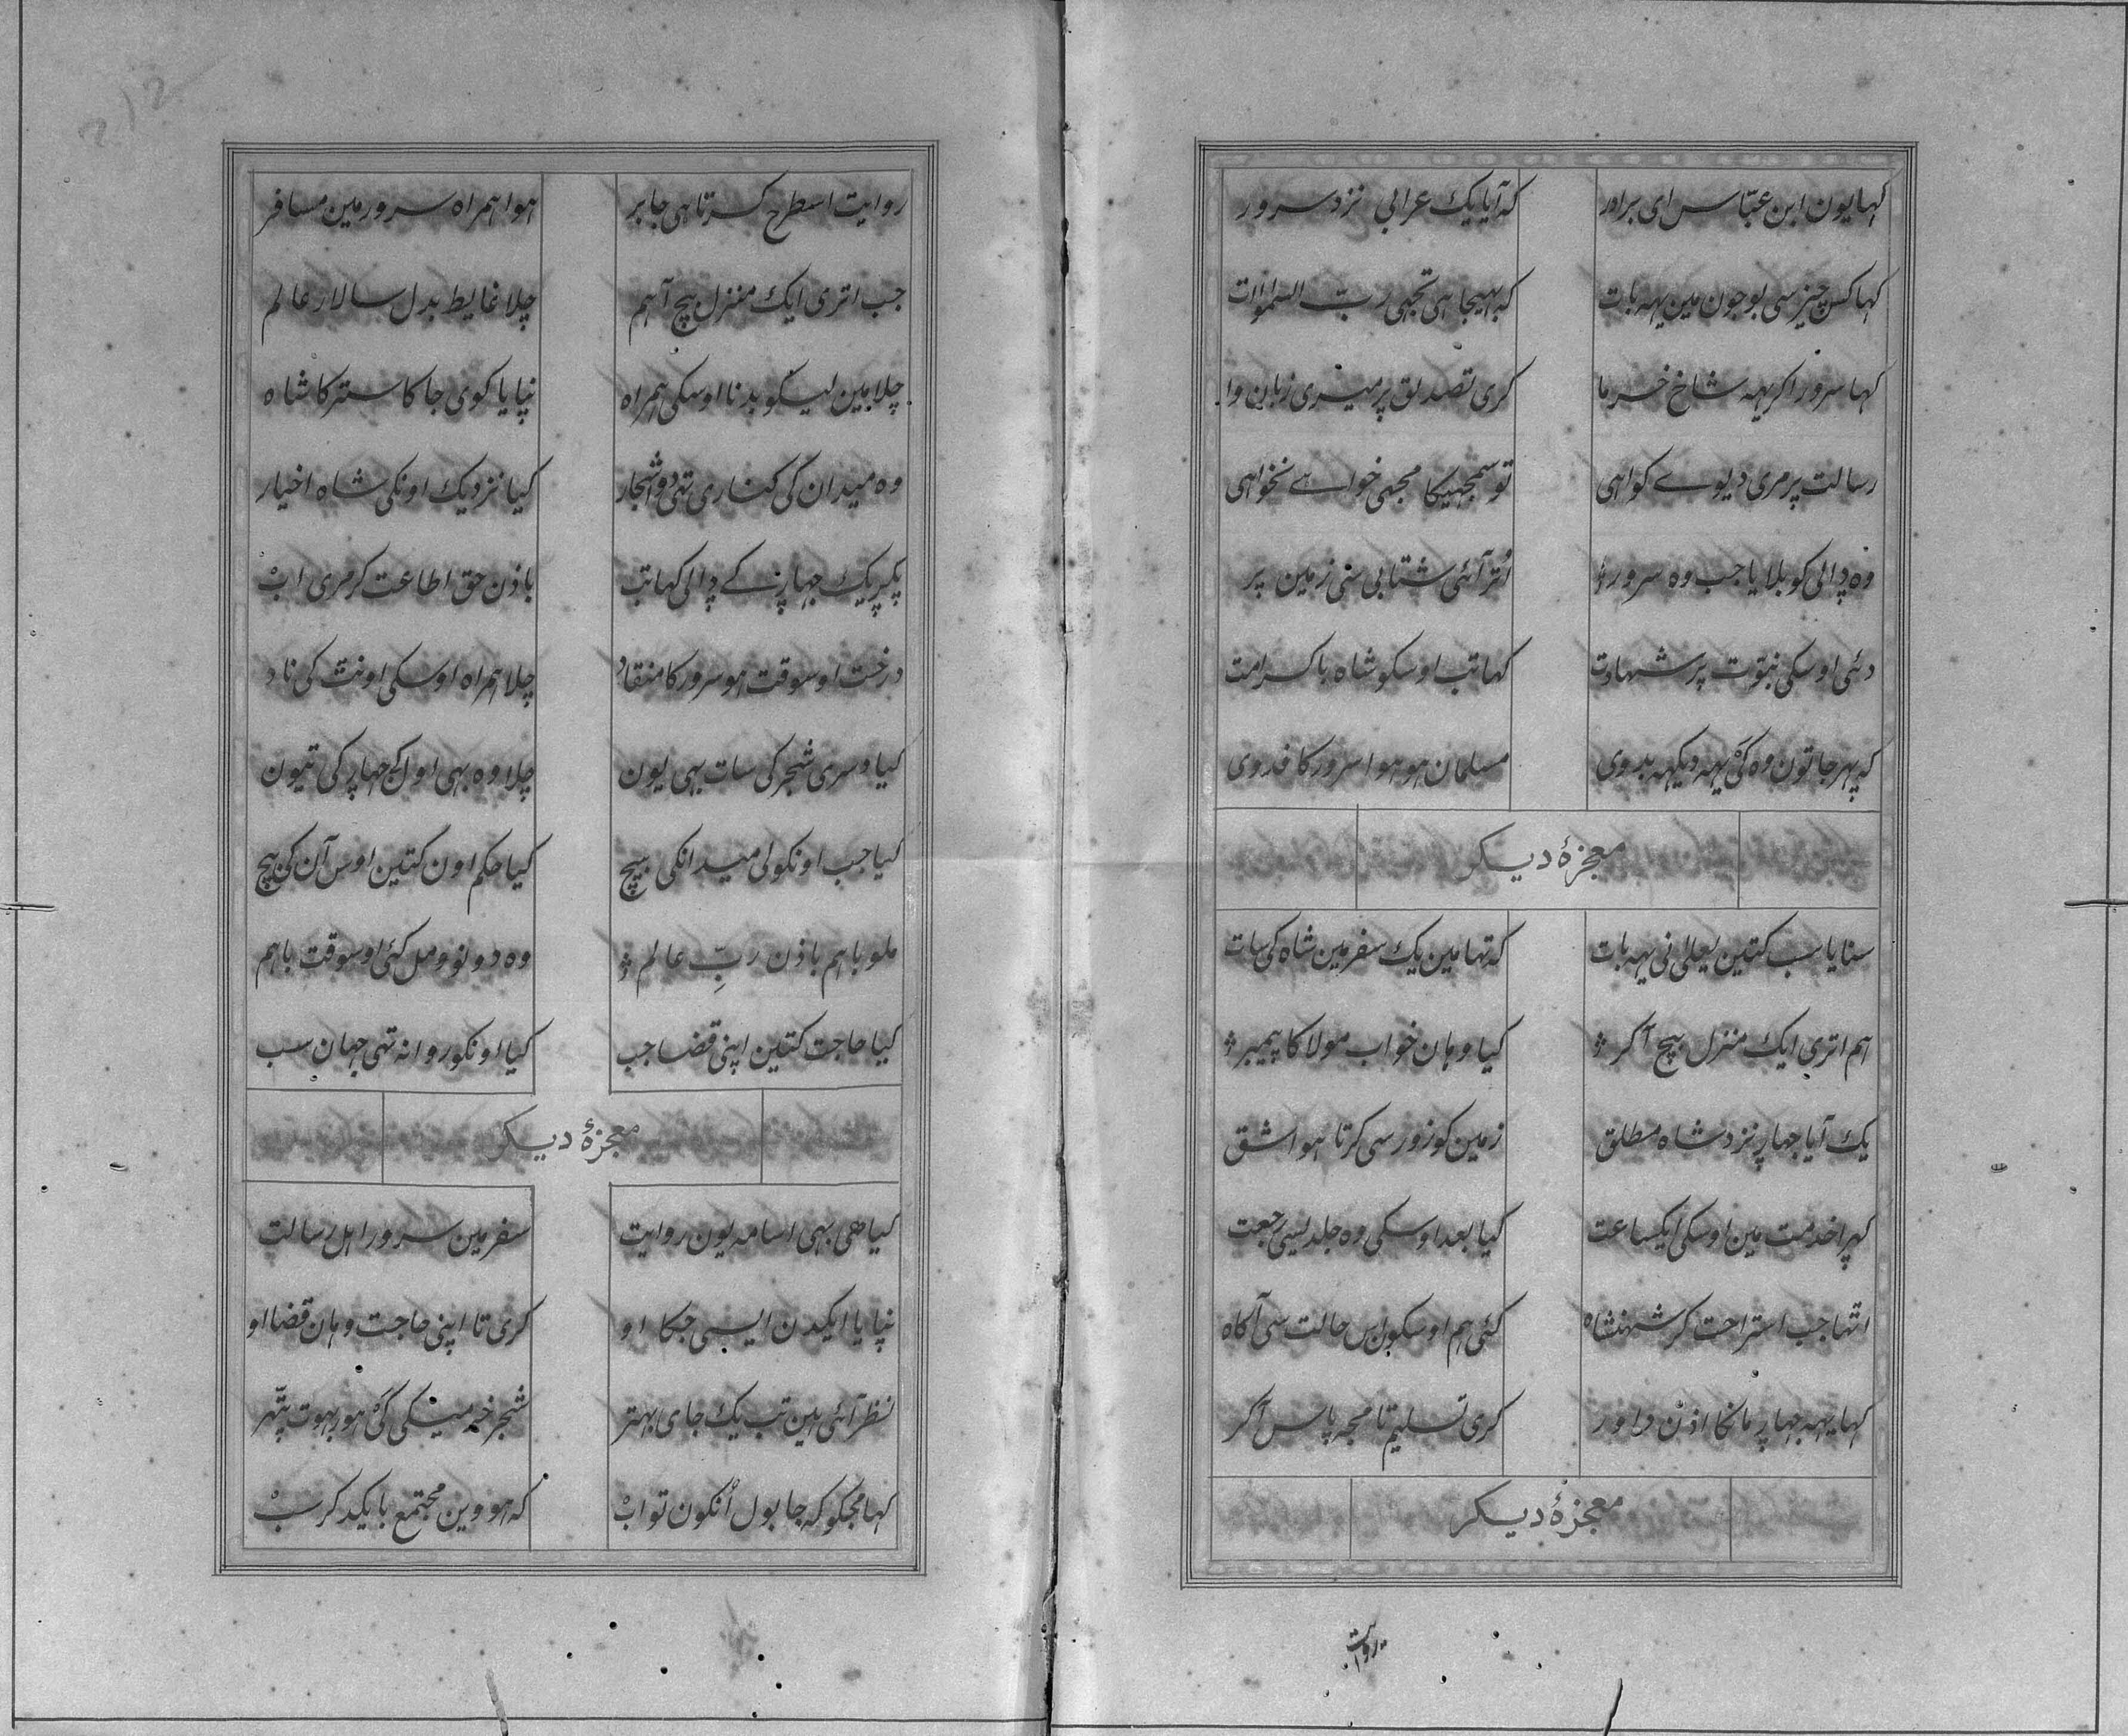 کہا یون ابن عبّاس ای برادر کہ آیا یک عرابی نزد سرور
کہا کس چیز سی بوجون مین یہہ بات کہ بہیجا ہی تجہی ربّ السموات
کہا سرور اکر یہہ شاخ خرما کری تصدیق پر میری زبان وا
رسالت پر مری دیوے کواہی تو سمجہیکا مجہی خواہے نخواہی
وہ ڈالی کو بلایا جب وہ سرور اُتر آئی شتابی سنی زمین پر
دئی اوسکی نبّوت پر شہادت کہا تب اوسکو شاہ با کرامت
کہ پہر جا تون وہ کئی یہہ دیکہہ بدوی مسلمان ہو ہوا سرور کا فدوی
معجزۂ دیکر
سنایا سب کتین یعلی نی یہہ بات کہ تہا مین یک سفر مین شاہ کی سات
ہم اتری ایک منزل بیچ آکر کیا وہان خواب مولا کا پیمبر
یک آیا جہاڑ نزد شاہ مطلق زمین کو زور سی کرتا ہوا شق
کہڑا خدمت مین اوسکی ایکساعت کیا بعد اوسکی وہ جلدیسی رجعت
اتہا جب استراحت کر شہنشاہ کئی ہم اوسکو اس حالت سی آکاہ
کہا یہہ جہاڑ مانکا اذن داور کری تسلیم تا مجہ پاس آکر
معجزۂ دیکر
روایت
روایت اسطرح کرتا ہی جابر ہوا ہمراہ سرور مین مسافر
جب اتری ایک منزل بیچ آ ہم چلا غایط بدل سالار عالم
چلا مین لیکو بدنا اوسکی ہمراہ نپایا کوی جاکا ستر کا شاہ
وہ میدان کی کناری تہی دو اشجار کیا نزدیک اونکی شاہ اخیار
پکڑ یک جہاڑ کے ڈالی کہا تب باذن حق اطاعت کر مری اب
درخت اوسوقت ہو سرور کا منقاد چلا ہمراہ اوسکی اونٹ کی ناد
کیا دسری شجر کی سات بہی یون چلا وہ بہی اول کی جہاڑ کی تیون
کیا جب اونکو لی میدانکی بیچ کیا حکم اون کتین اوس آن کی بیچ
ملو باہم باذن ربِّ عالم وہ دونو مل کئی اوسوقت باہم
کیا حاجت کتین اپنی قضا جب کیا اونکو روانہ تہی جہان سب
معجزۂ دیکر
کیا ہی بہی اسامہ یون روایت سفر مین سرور اہل رسالت
نپایا ایکدن ایسی جکا او کری تا اپنی حاجت وہان قضا او
نظر آئی مین تب یک جای بہتر شجر خرمینکی کئی ہور بہوت پتّہر
کہا مجکو کہ جا بول اُنکون تو اب کہ ہووین مجتمع با یکدکر سب